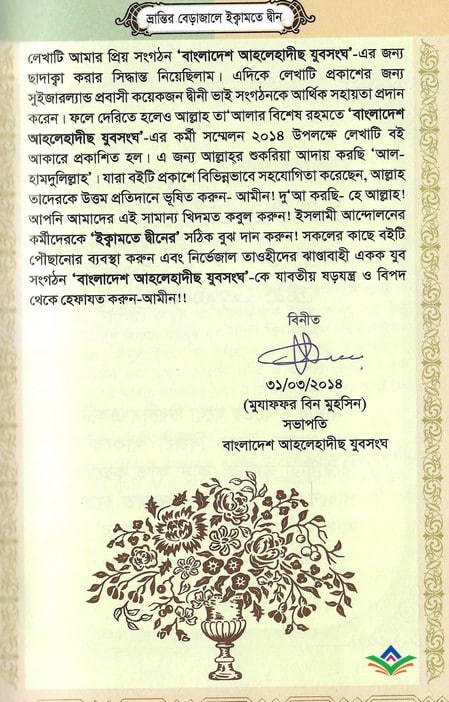 ভ্রান্তির বেড়াজালে ইক্বামতে দ্বীন
লেখাটি আমার প্রিয় সংগঠন ‘বাংলাদেশ আহলেহাদীছ যুবসংঘ’-এর জন্য
ছাদাক্বা করার সিদ্ধান্ত নিয়েছিলাম। এদিকে লেখাটি প্রকাশের জন্য
সুইজারল্যান্ড প্রবাসী কয়েকজন দ্বীনী ভাই সংগঠনকে আর্থিক সহায়তা প্রদান
করেন। ফলে দেরিতে হলেও আল্লাহ তা‘আলার বিশেষ রহমতে ‘বাংলাদেশ
আহলেহাদীছ যুবসংঘ’-এর কর্মী সম্মেলন ২০১৪ উপলক্ষে লেখাটি বই
আকারে প্রকাশিত হল। এ জন্য আল্লাহ্‌র শুকরিয়া আদায় করছি ‘আল-
হামদুলিল্লাহ’। যারা বইটি প্রকাশে বিভিন্নভাবে সহযোগিতা করেছেন, আল্লাহ
তাদেরকে উত্তম প্রতিদানে ভূষিত করুন- আমীন! দু‘আ করছি- হে আল্লাহ!
আপনি আমাদের এই সামান্য খিদমত কবুল করুন! ইসলামী আন্দোলনের
কর্মীদেরকে ‘ইক্বামতে দ্বীনের’ সঠিক বুঝ দান করুন! সকলের কাছে বইটি
পৌছানোর ব্যবস্থা করুন এবং নির্ভেজাল তাওহীদের ঝাণ্ডাবাহী একক যুব
সংগঠন ‘বাংলাদেশ আহলেহাদীছ যুবসংঘ’-কে যাবতীয় ষড়যন্ত্র ও বিপদ
থেকে হেফাযত করুন-আমীন!!
বিনীত
৩১/০৩/২০১৪
(মুযাফফর বিন মুহসিন)
সভাপতি
বাংলাদেশ আহলেহাদীছ যুবসংঘ